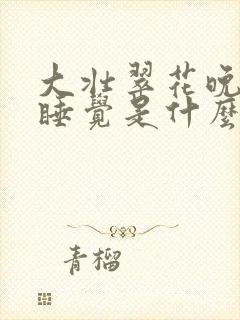 大壮翠花晚
睡覺是什麼
青榴